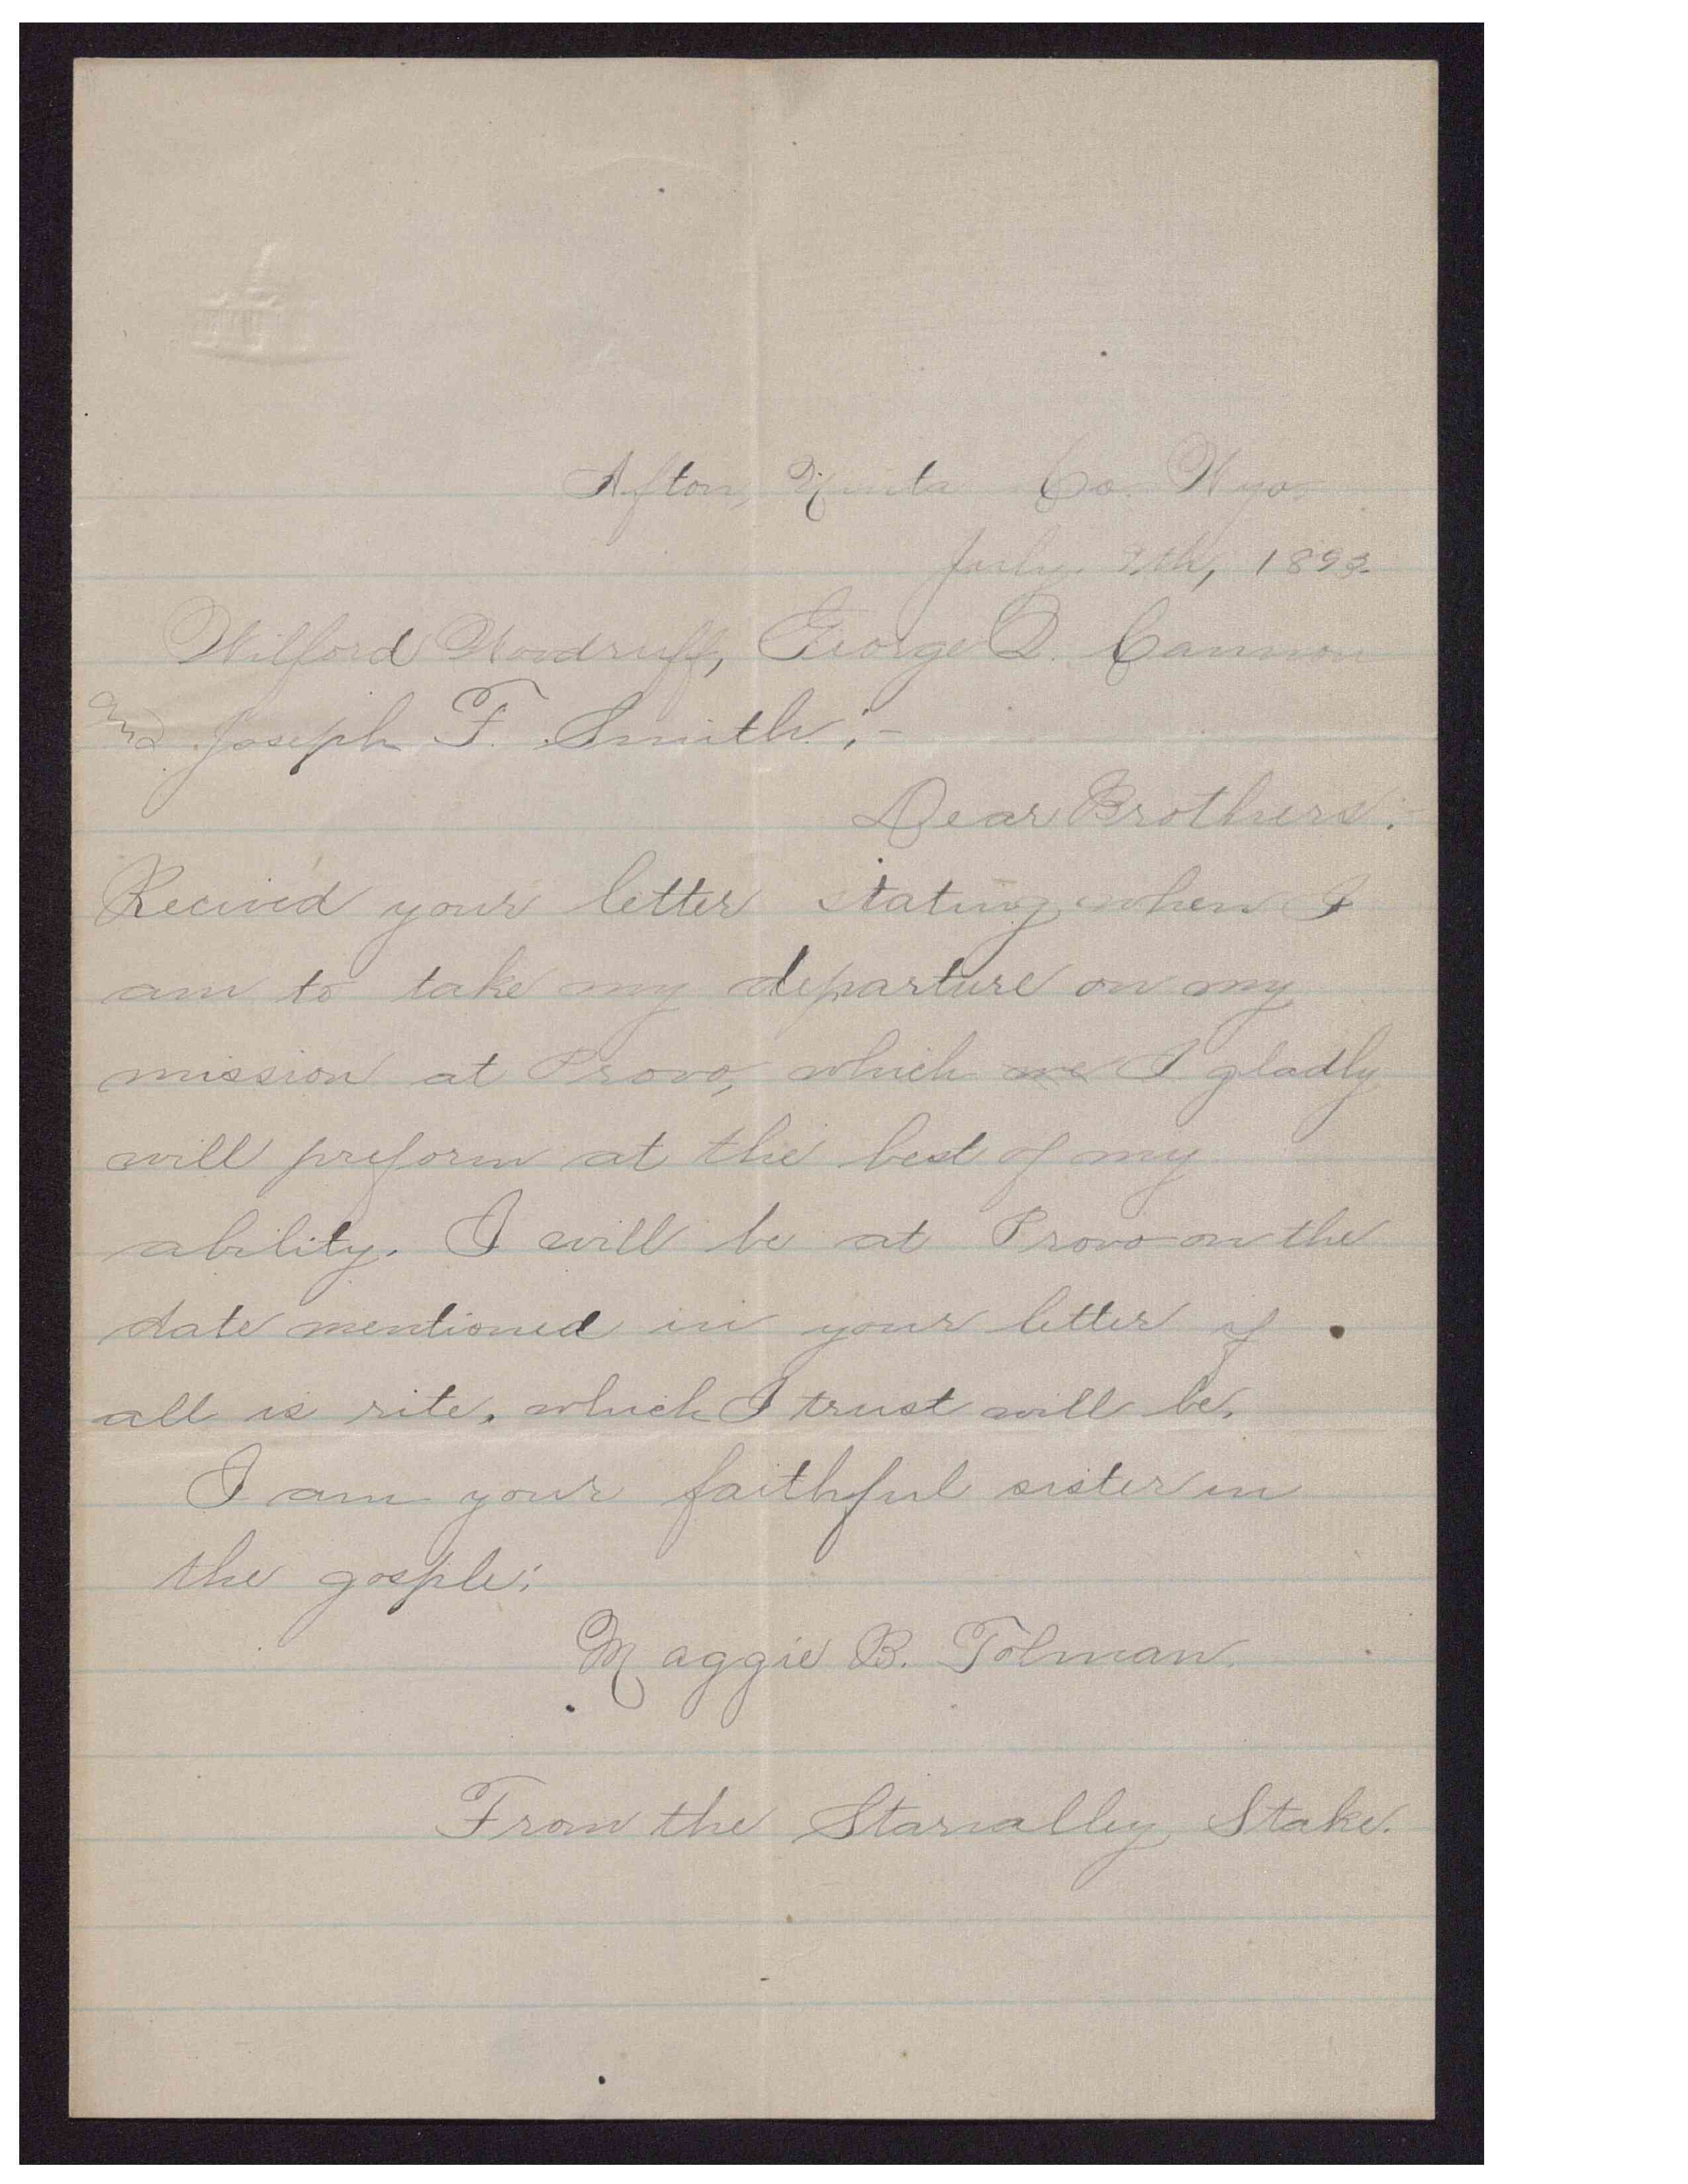 Afton, Uinta Co. Wyo.
July 9th, 1893.
Wilford Woodruff, George Q. Cannon
and Joseph F. Smith;-
Dear Brothers:-
Recived your letter stating when I
am to take my departure on my
mission at Provo, which me I gladly
will preform at the best of my
ability. I will be at Provo on the
date mentioned in your letter if
all is rite. which I trust will be.
I am your faithful sister in
the gosple;
Maggie B. Tolman.
From the Starvalley Stake.